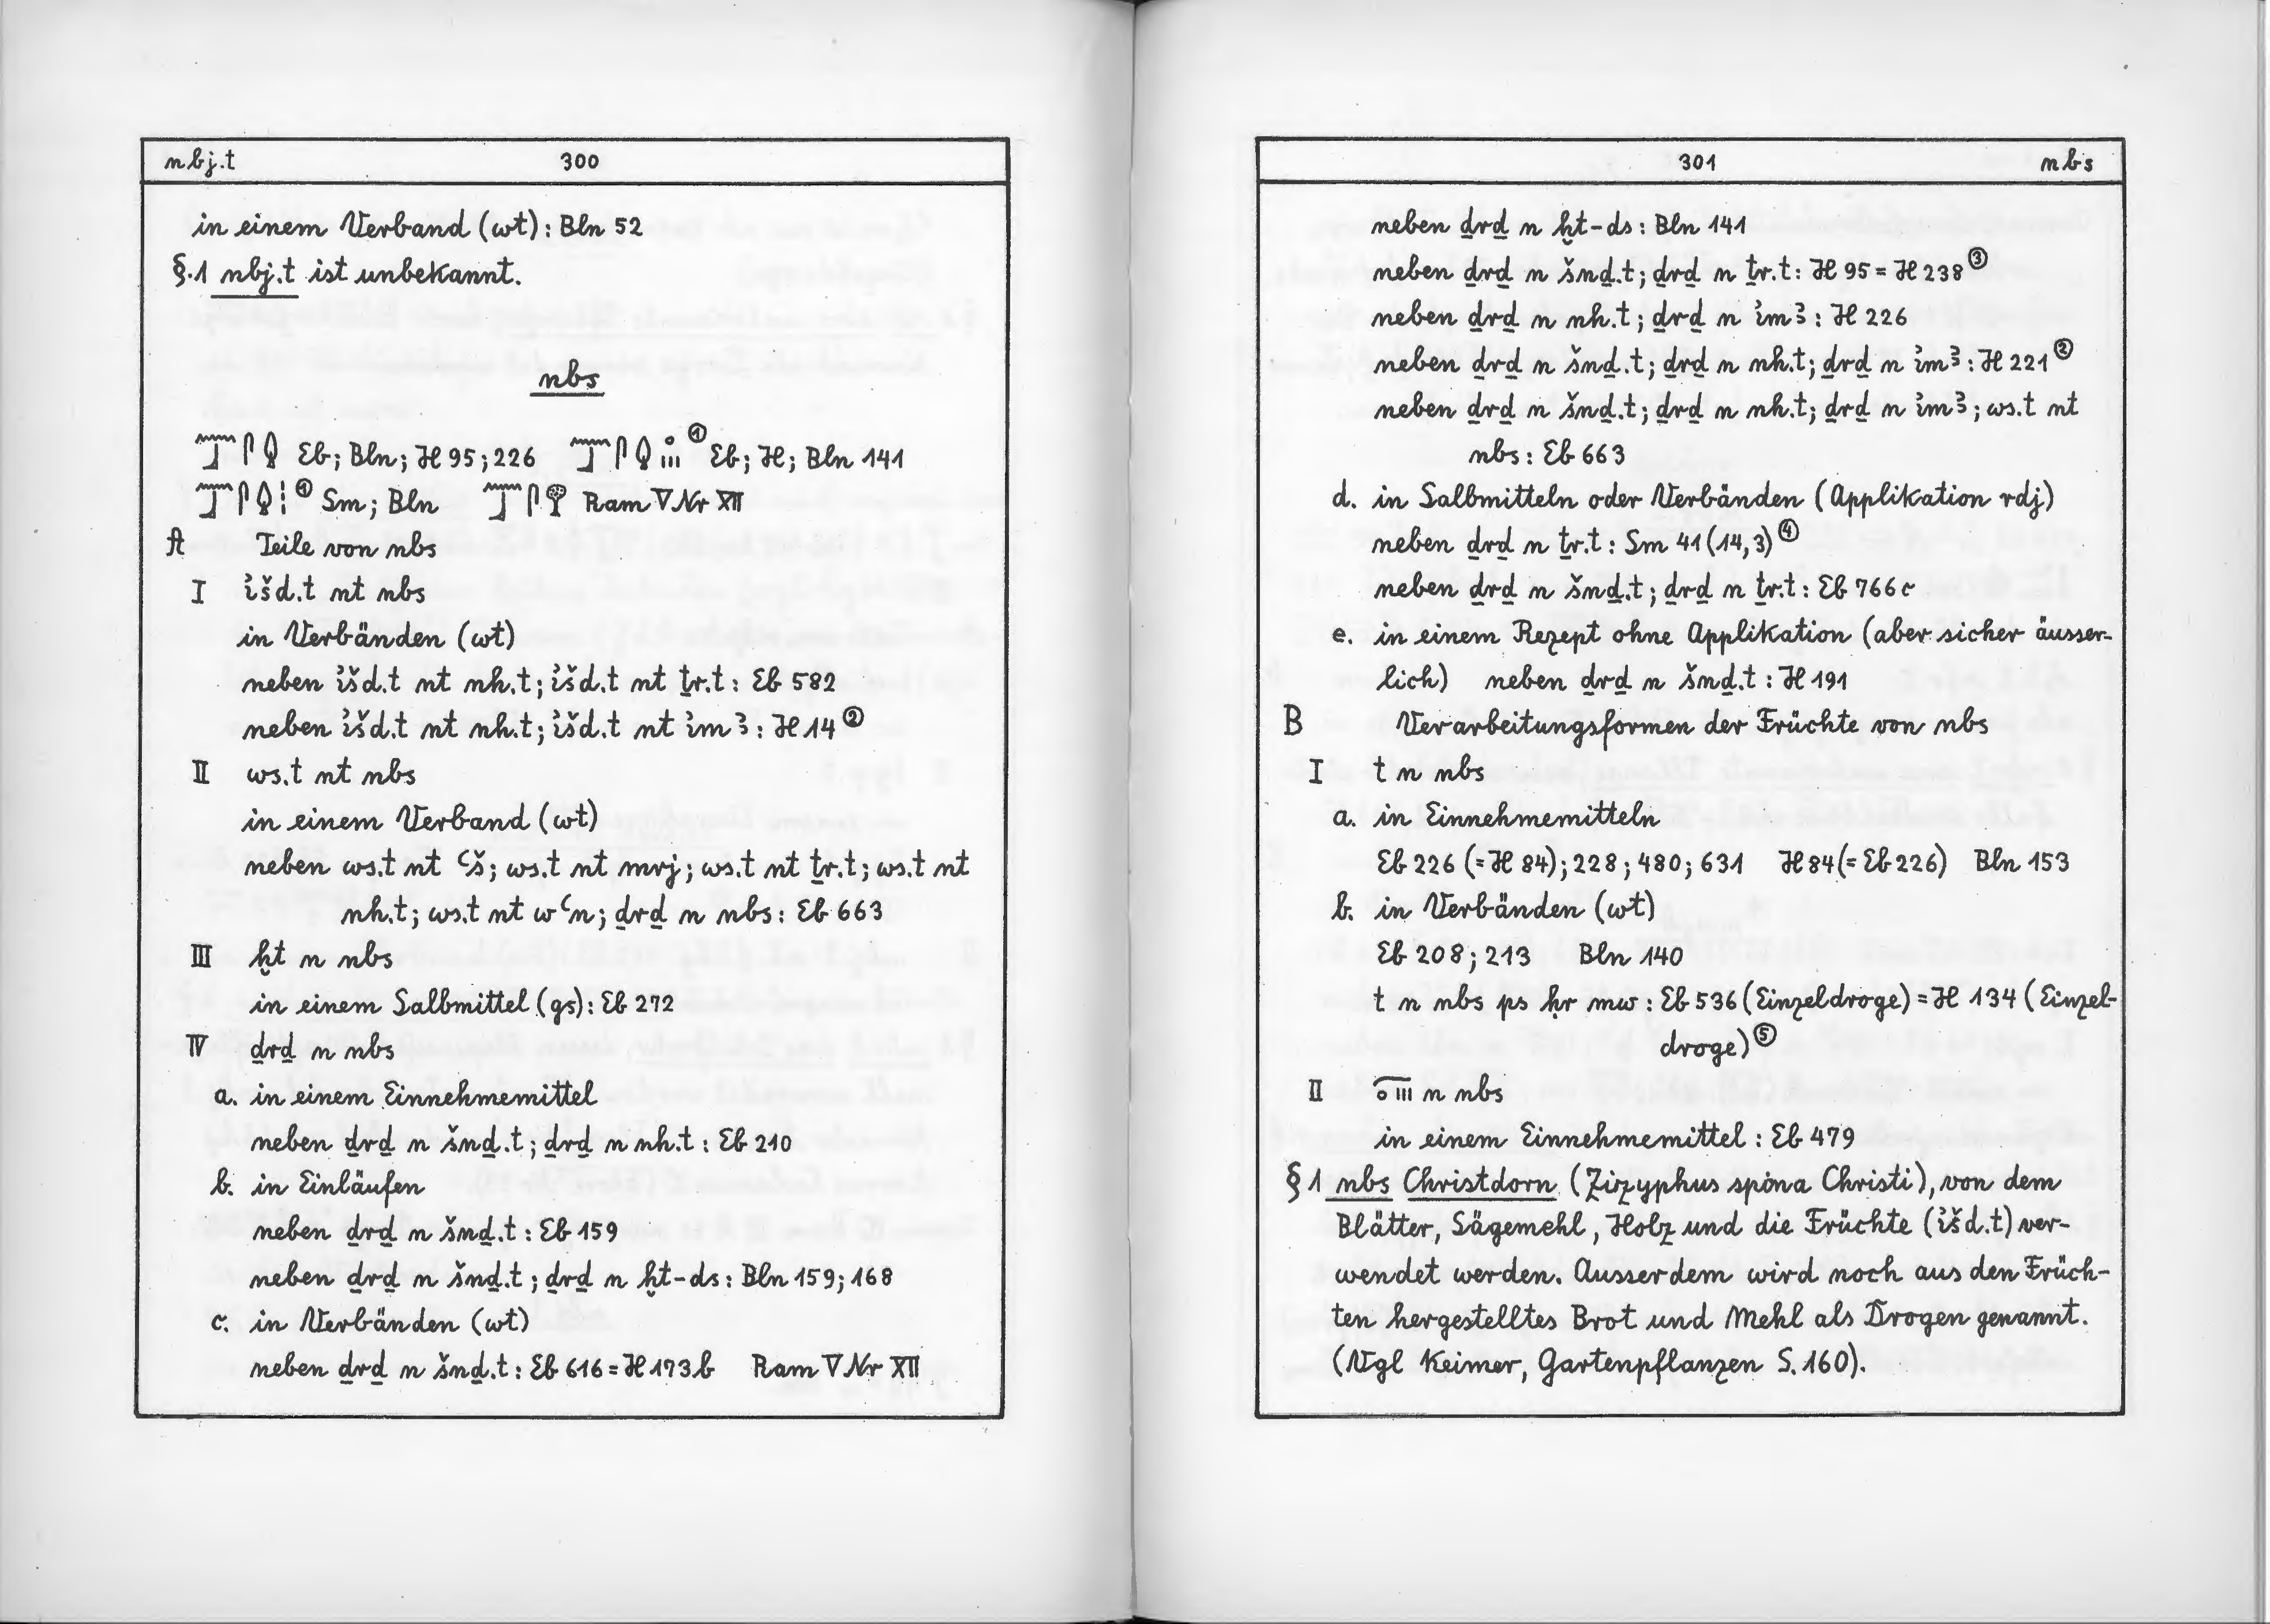 nbj.t 300
in einem Verband (wt): Bln 52
§.1 nbj.t ist unbekannt.
nbs
Eb; Bln; H 95; 226 ① Eb; H; Bln 141
① Sm; Bln Ram V Nr XII
A Teile von nbs
I ἰšd.t nt nbs
in Verbänden (wt)
neben ἰšd.t nt nh.t; ἰšd.t nt ṯr.t: Eb 582
neben ἰšd.t nt nh.t; ἰšd.t nt ἰmꜣ: H 14 ②
II ws.t nt nbs
in einem Verband (wt)
neben ws.t nt ꜥš; ws.t nt mrj; ws.t nt ṯr.t; ws.t nt
nh.t; ws.t nt wꜥn; ḏrḏ n nbs: Eb 663
III ḫt n nbs
in einem Salbmittel (gs): Eb 272
IV ḏrḏ n nbs
a. in einem Einnehmemittel
neben ḏrḏ n šnḏ.t; ḏrḏ n nh.t: Eb 210
b. in Einläufen
neben ḏrḏ n šnḏ.t: Eb 159
neben ḏrḏ n šnḏ.t; ḏrḏ n ḫt-ds: Bln 159; 168
c. in Verbänden (wt)
neben ḏrḏ n šnḏ.t: Eb 616 = H 173b Ram V Nr XII
301 nbs
neben ḏrḏ n ḫt-ds: Bln 141
neben ḏrḏ n šnḏ.t; ḏrḏ n ṯr.t: H 95 = H 238 ③
neben ḏrḏ n nh.t; ḏrḏ n ἰmꜣ: H 226
neben ḏrḏ n šnḏ.t; ḏrḏ n nh.t; ḏrḏ n ἰmꜣ: H 221 ②
neben ḏrḏ n šnḏ.t; ḏrḏ n nh.t; ḏrḏ n ἰmꜣ; ws.t nt
nbs: Eb 663
d. in Salbmitteln oder Verbänden (Applikation rdj)
neben ḏrḏ n ṯr.t: Sm 41 (14,3) ④
neben ḏrḏ n šnḏ.t; ḏrḏ n ṯr.t: Eb 766c
e. in einem Rezept ohne Applikation (aber sicher äusser-
lich) neben ḏrḏ n šnḏ.t: H 191
B Verarbeitungsformen der Früchte von nbs
I t n nbs
a. in Einnehmemitteln
Eb 226 (= H 84); 228; 480; 631 H 84 (= Eb 226) Bln 153
b. in Verbänden (wt)
Eb 208; 213 Bln 140
t n nbs ps ḥr mw: Eb 536 (Einzeldroge) = H 134 (Einzel-
droge) ⑤
II n nbs
in einem Einnehmemittel: Eb 479
§ 1 nbs Christdorn (Zizyphus spina Christi), von dem
Blätter, Sägemehl, Holz und die Früchte (ἰšd.t) ver-
wendet werden. Ausserdem wird noch aus den Früch-
ten hergestelltes Brot und Mehl als Drogen genannt.
(Vgl Keimer, Gartenpflanzen S. 160).